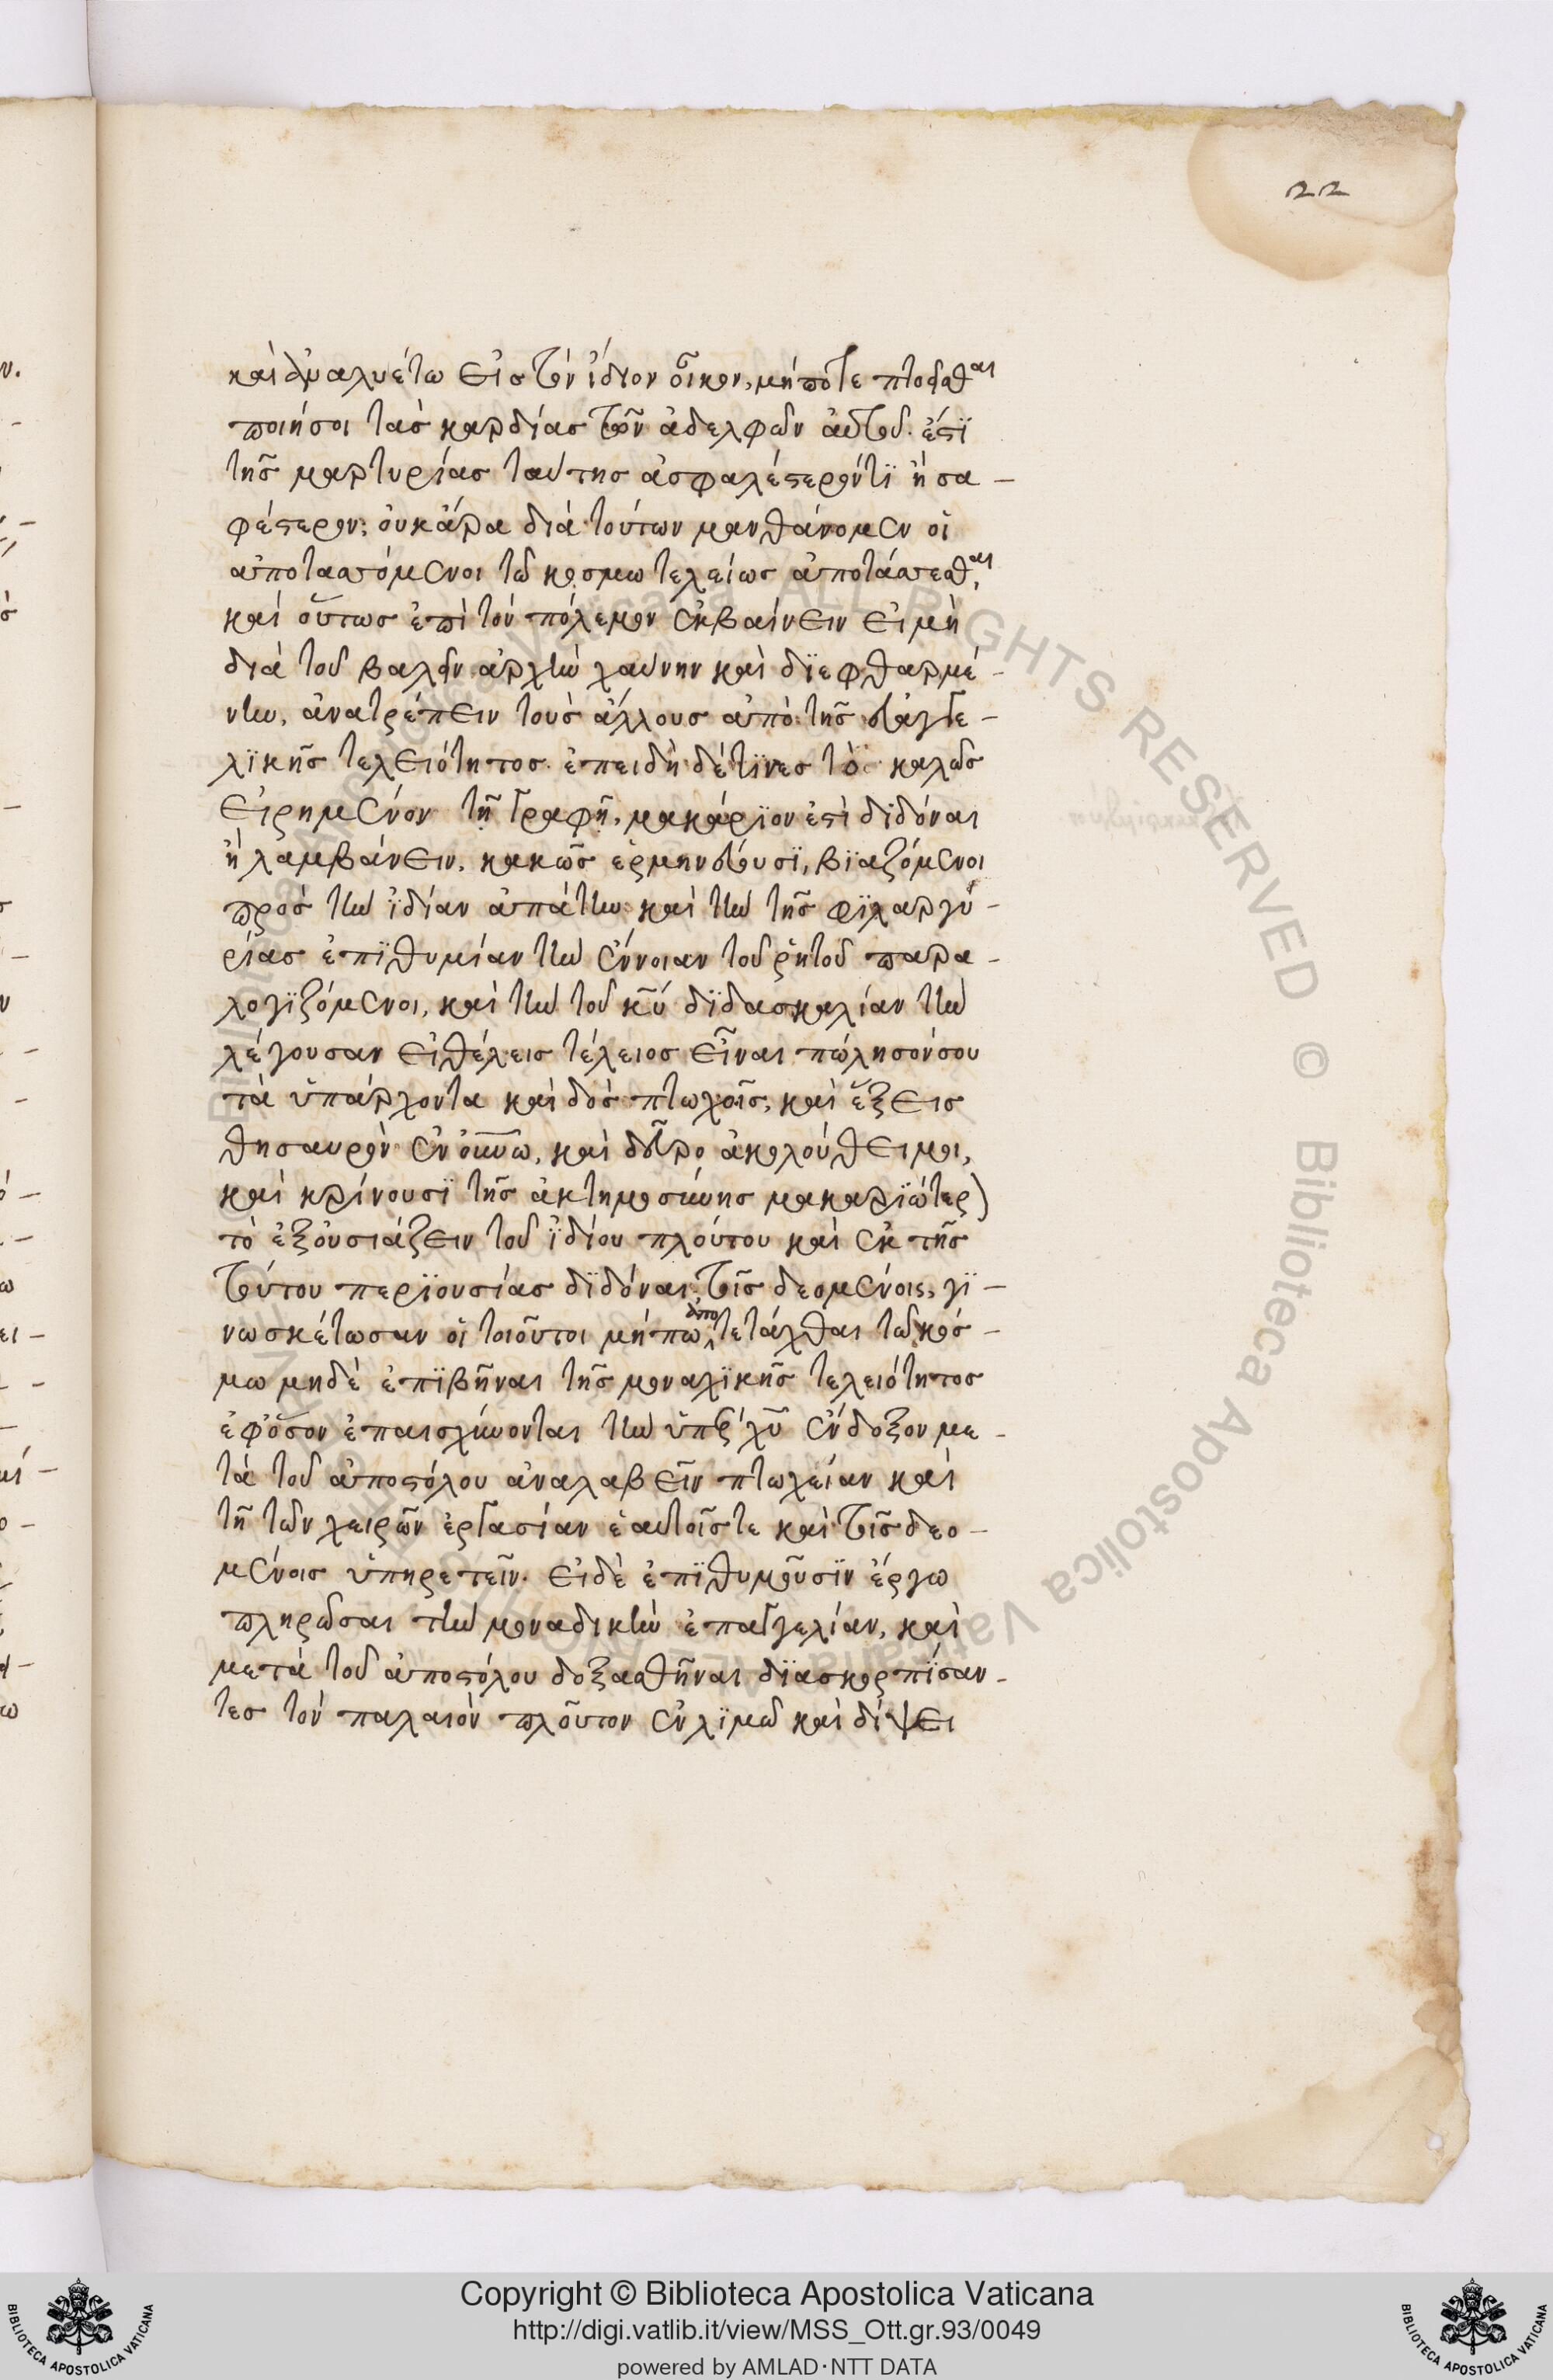 22
καὶ ἀναλυέτω εἰς τὸν ἴδιον οἶκον, μήποτε πτοεῖσθαι
ποιήσοι τὰς καρδίας τῶν ἀδελφῶν αὐτοῦ. ἐστῒ
τῆς μαρτυρίας ταύτης ἀσφαλέστερόν τϊ ἢ σα –
φέστερον; οὐκ ἄρα διὰ τούτων μανθάνομεν οἱ
ἀποτασσόμενοι τῶ κοσμω τελείως ἀποτάσσεσθαι,
καὶ οὕτως ἐπὶ τὸν πόλεμον ἐκβαίνειν εἰ μὴ
διὰ τοῦ βαλεῖν ἀρχὴν χαύνην καὶ δϊεφθαρμέ –
νην, ἀνατρέπειν τοὺς ἄλλους ἀπὸ τῆς εὐαγγε –
λϊκῆς τελειότητος. ἐπειδὴ δέ τϊνες τὸ καλῶς
εἰρημένον τῆ γραφῆ, μακάρϊον ἐστὶ δϊδόναι
ἢ λαμβάνειν, κακῶς ἑρμηνεύουσϊ, βϊαζόμενοι
πρὸς τὴν ἰδίαν ἀπάτην καὶ τὴν τῆς φϊλαργυ –
ρίας ἐπϊθυμίαν τὴν ἔννοιαν τοῦ ῥητοῦ παρα –
λογϊζόμενοι, καὶ τὴν τοῦ κυ δϊδασκαλίαν τὴν
λέγουσαν εἰ θέλεις τέλειος εἶναι πώλησόν σου
τὰ ὑπάρχοντα καὶ δὸς πτωχοῖς, καὶ ἕξεις
θησαυρὸν ἐν οὐνω, καὶ δεῦρο ἀκολούθει μοι,
καὶ κρίνουσϊ τῆς ἀκτημοσύνης μακαρϊώτερ)
τὸ ἐξουσιάζειν τοῦ ἰδίου πλούτου καὶ ἐκ τῆς
τούτου περϊουσίας δϊδόναι τοῖς δεομένοις, γϊ –
νωσκέτωσαν οἱ τοιοῦτοι μήπω ἀποτετάχθαι τῶ κόσ –
μω μηδὲ ἐπϊβῆναι τῆς μοναχϊκῆς τελειότητος
ἐφόσον ἐπαισχύνονται τὴν ὑπὲρ χυ ἔνδοξον με –
τὰ τοῦ ἀποστόλου ἀναλαβεῖν πτωχείαν καὶ
τῆ τῶν χειρῶν ἐργασίαν ἑαυτοῖς τε καὶ τοῖς δεο –
μένοις ὑπηρετεῖν. εἰ δὲ ἐπϊθυμοῦσϊν ἔργω
πληρῶσαι τὴν μοναδικὴν ἐπαγγελίαν, καὶ
μετὰ τοῦ ἀποστόλου δοξασθῆναι δϊασκορπϊσαν –
τες τὸν παλαιὸν πλοῦτον ἐν λϊμῶ καὶ δίψει
Copyright © Biblioteca Apostolica Vaticana
http://digi.vatlib.it/view/MSS_Ott.gr.93/0049
powered by AMLAD·NTT DATA